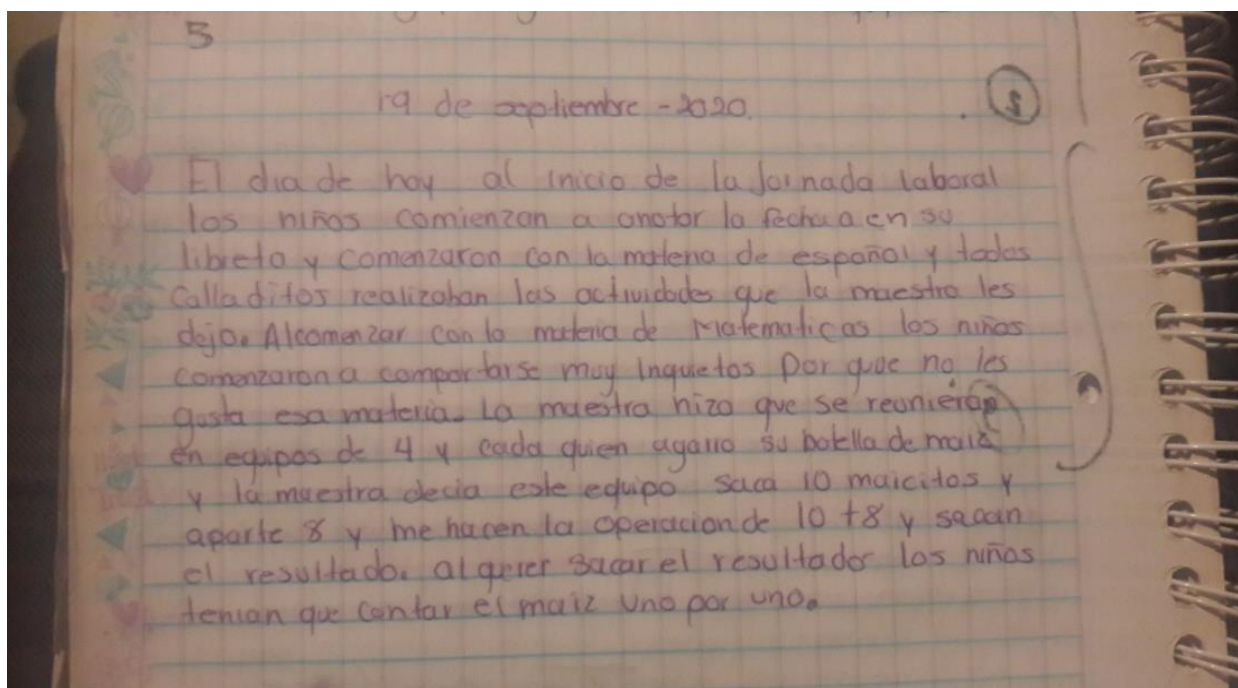 5
19 de septiembre - 2020.
El dia de hoy al inicio de la Jornada laboral
los niños comienzan a anotar la fecha a en su
libreta y comenzaron con la materia de español y todos
calladitos realizaban las actividades que la maestra les
dejo. Al comenzar con la materia de Matematicas los niños
comenzaron a comportarse muy inquietos por que no les
gusta esa materia. La maestra hizo que se reunieran
en equipos de 4 y cada quien agarro su botella de maiz
y la maestra decia este equipo saca 10 maicitos y
aparte 8 y me hacen la operacion de 10 +8 y sacan
el resultado. al querer sacar el resultado los niños
tenian que contar el maiz uno por uno.